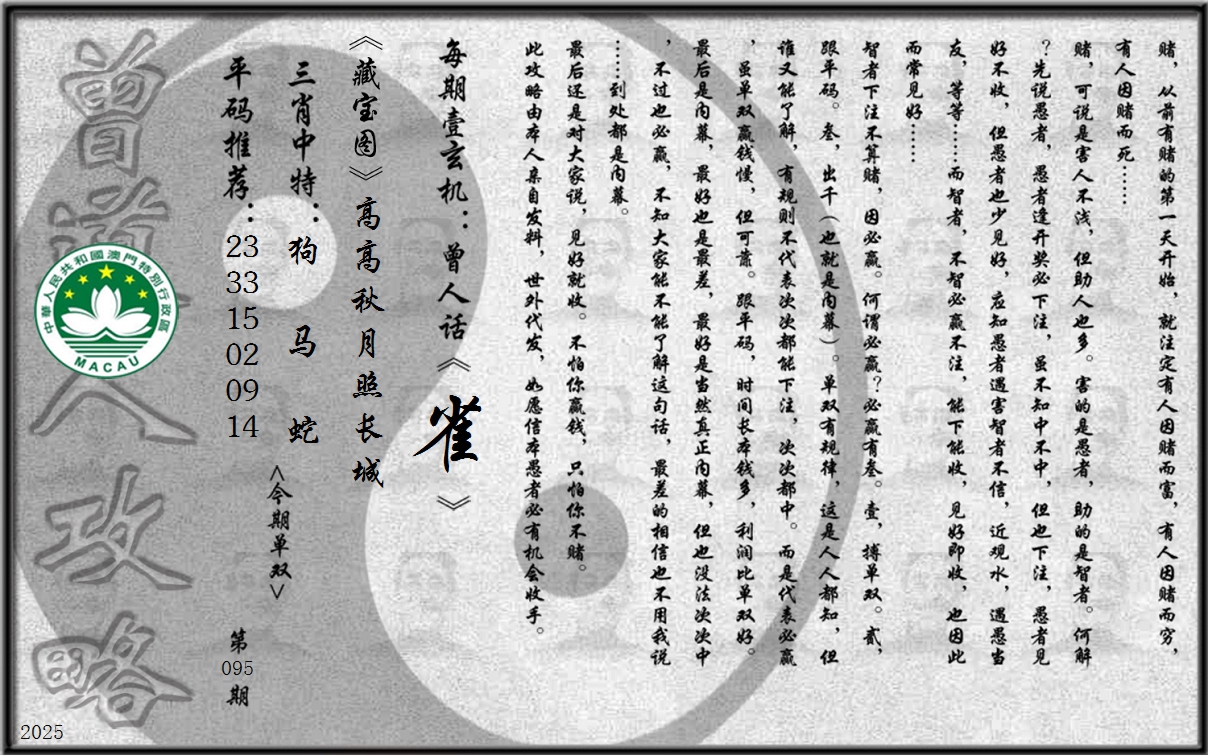 赌，从前有赌的第一天开始，就注定有人因赌而富，有人因赌而穷，
有人因赌而死……
赌，可说是害人不浅，但助人也多。害的是愚者，助的是智者。何解
？先说愚者，愚者逢开奖必下注，虽不知中不中，但也下注，愚者见
好不收，但愚者也少见好，应知愚者遇害智者不信，近观水，遇愚当
友，等等……而智者，不智必赢不注，能下能收，见好即收，也因此
而常见好……
智者下注不算赌，因必赢。何谓必赢？必赢有叁。壹，搏单双。贰，
跟平码。叁，出千（也就是内幕）。单双有规律，这是人人都知，但
谁又能了解，有规则不代表次次都能下注，次次都中。而是代表必赢
，虽单双赢钱慢，但可靠。跟平码，时间长本钱多，利润比单双好。
最后是内幕，最好也是最差，最好是当然真正内幕，但也没法次次中
，不过也必赢，不知大家能不能了解这句话，最差的相信也不用我说
……到处都是内幕。
最后还是对大家说，见好就收。不怕你赢钱，只怕你不赌。
此攻略由本人亲自发料，世外代发，如愿信本愚者必有机会收手。
每期壹玄机：曾人话《雀》
《藏宝图》高高秋月照长城
三肖中特：狗 马 蛇
<今期单双>
平码推荐：23 33 15 02 09 14
第095期
曾道人攻略
中華人民共和國澳門特別行政區
MACAU
2025